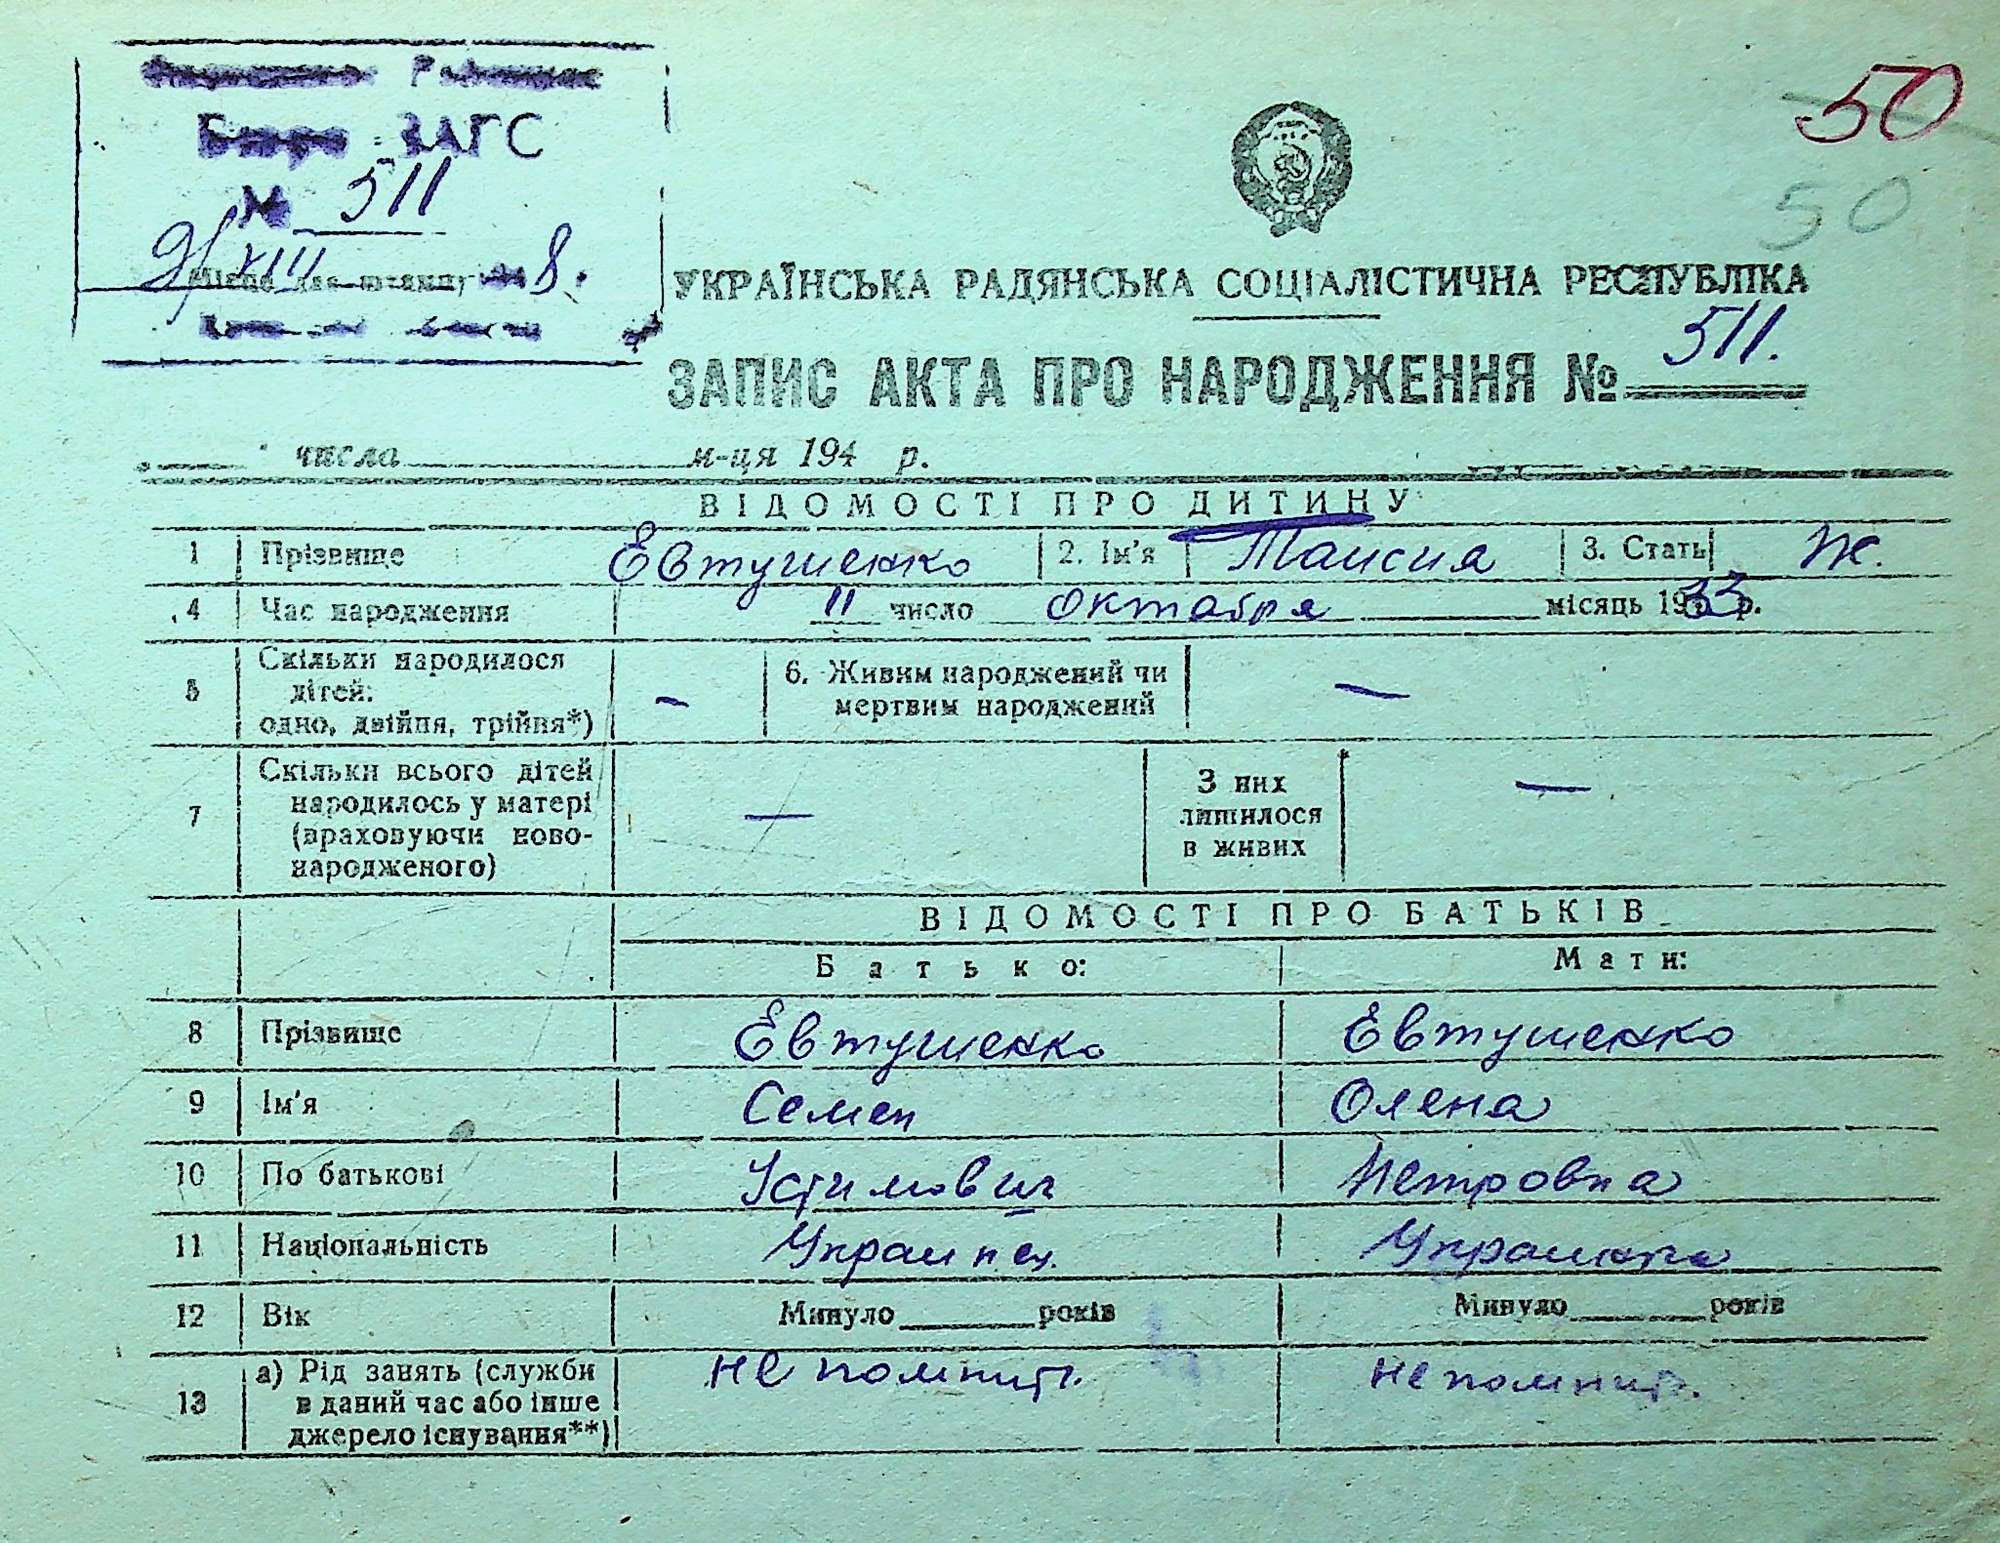 ЗАГС
№ 511
Місце для штампу
8.
50
50
УКРАЇНСЬКА РАДЯНСЬКА СОЦІАЛІСТИЧНА РЕСПУБЛІКА
ЗАПИС АКТА ПРО НАРОДЖЕННЯ № 511.
числа м-ця 194 р.
ВІДОМОСТІ ПРО ДИТИНУ
1 Прізвище Евтушенко 2. Ім'я Таисия 3. Стать Ж.
4 Час народження 11 число октабря місяць 1933 р.
5 Скільки народилося
дітей:
одно, двійня, трійня*) — 6. Живим народжений чи
мертвим народжений —
7 Скільки всього дітей
народилось у матері
(враховуючи ново-
народженого) —
З них
лишилося
в живих —
ВІДОМОСТІ ПРО БАТЬКІВ
Батько: Мати:
8 Прізвище Евтушенко Евтушенко
9 Ім'я Семен Олена
10 По батькові Устимович Петровна
11 Національність Украинец. Украинка
12 Вік Минуло років Минуло років
13 а) Рід занять (служби
в даний час або інше
джерело існування**) не помнит. не помнит.